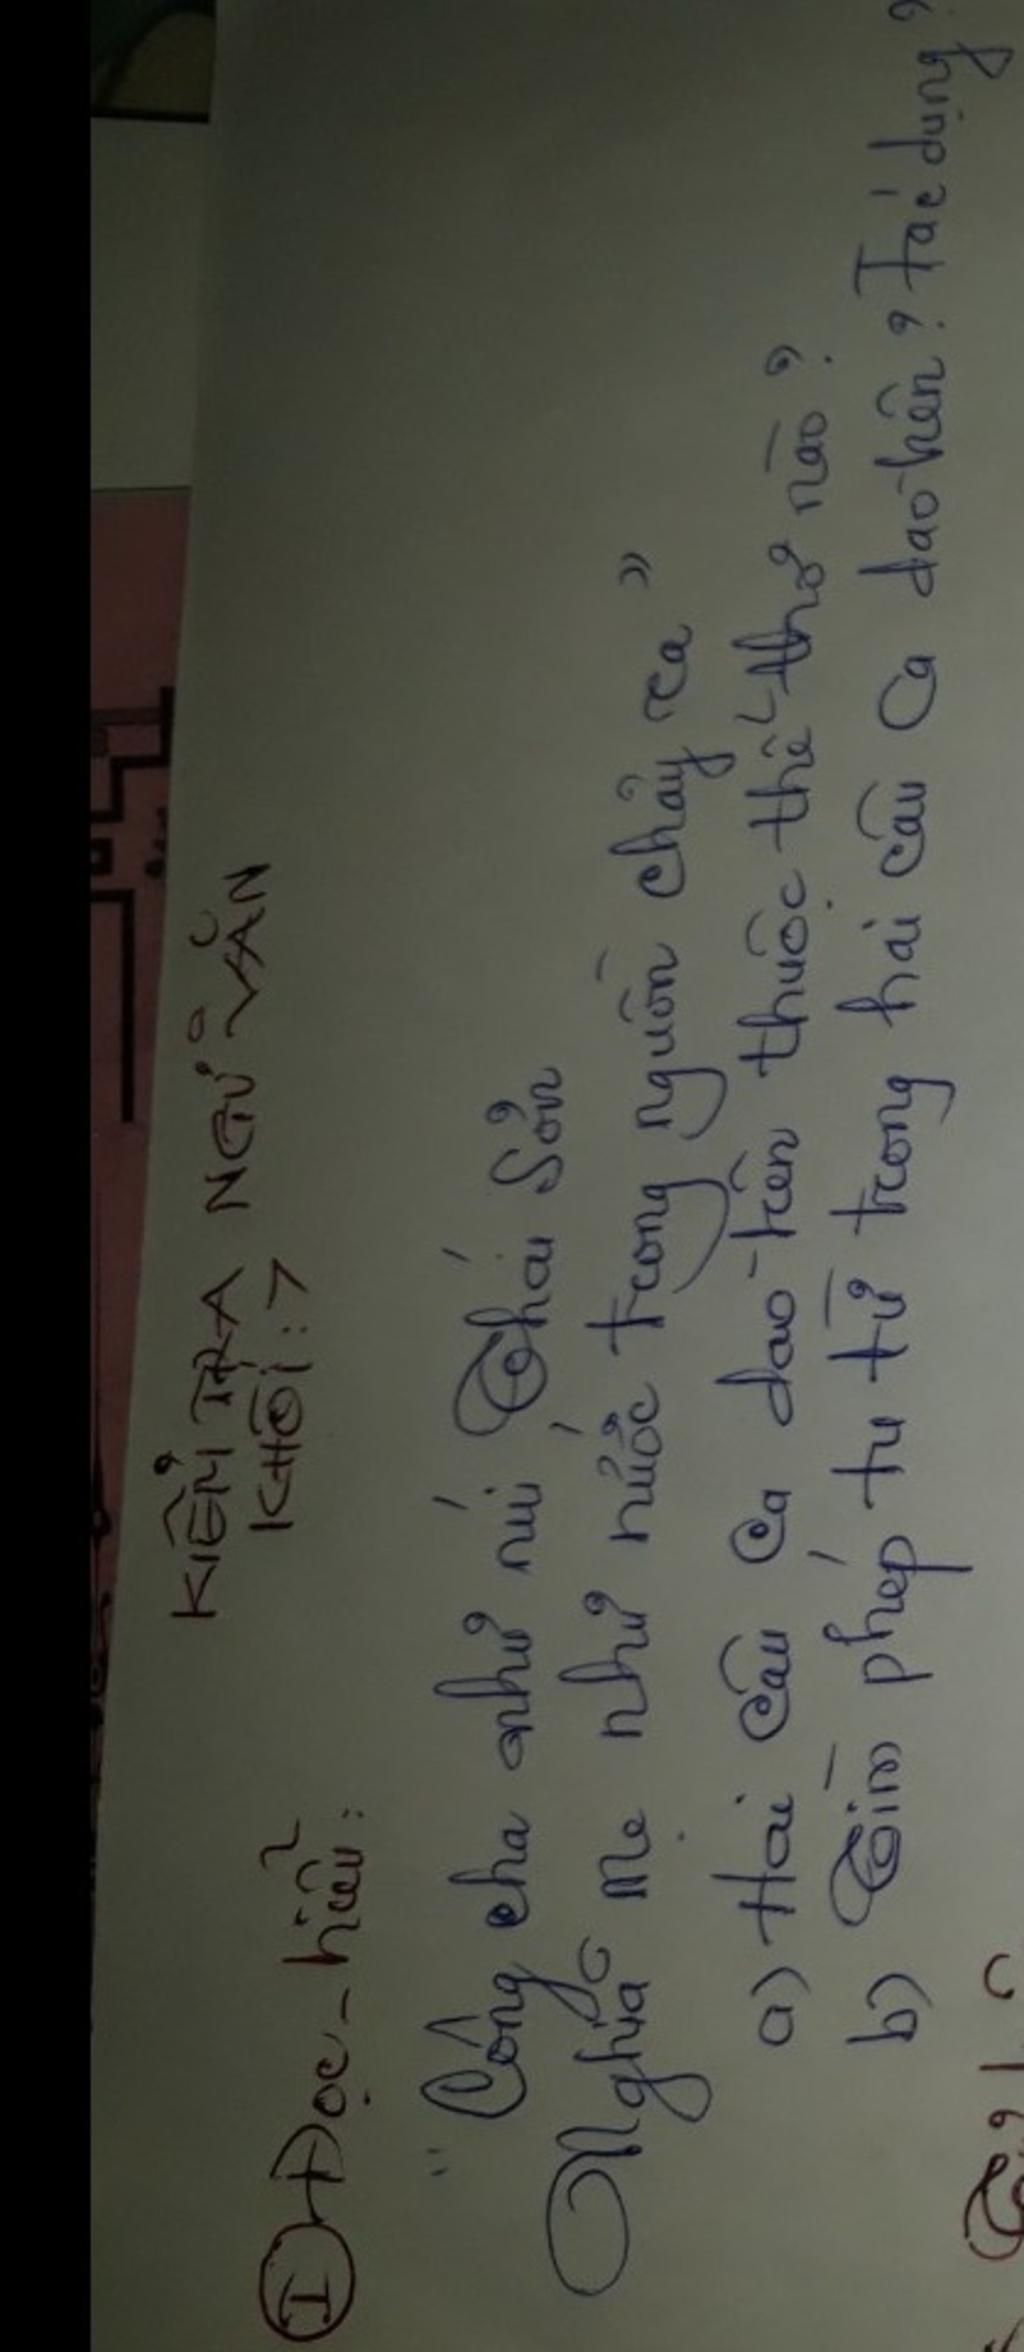 KIỂM TRA NGỮ VĂN
KHỐI: 7
I Đọc - hiểu:
" Công cha như núi Thái Sơn
Nghĩa mẹ như nước trong nguồn chảy ra "
a) Hai câu ca dao trên thuộc thể thơ nào?
b) Tìm phép tu từ trong hai câu ca dao trên? Tác dụng?